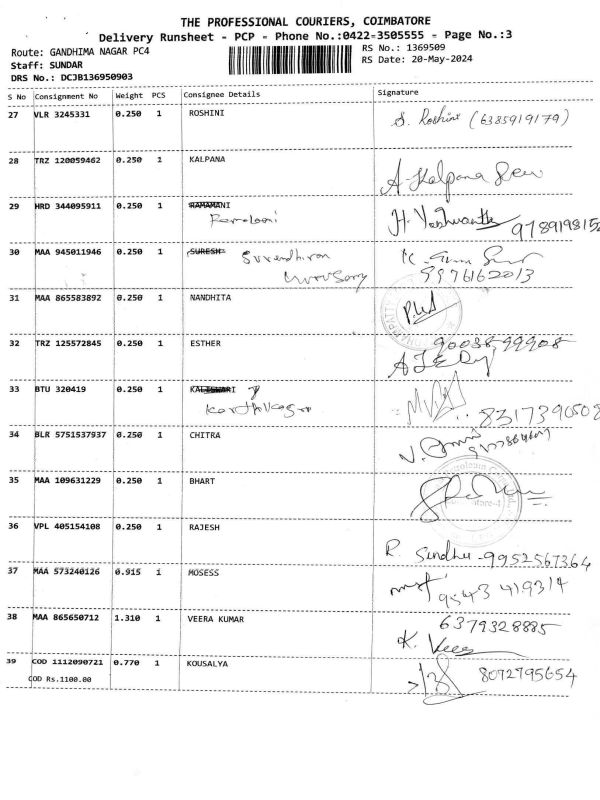 THE PROFESSIONAL COURIERS, COIMBATORE
Delivery Runsheet - PCP - Phone No.:0422-3505555 - Page No.:3
Route: GANDHIMA NAGAR PC4
RS No.: 1369509
Staff: SUNDAR
RS Date: 20-May-2024
DRS No.: DCJB136950903
S No Consignment No Weight PCS Consignee Details Signature
27 VLR 3245331 0.250 1 ROSHINI S. Roshini (6385919179)
28 TRZ 120059462 0.250 1 KALPANA A Kalpana Devi
29 HRD 344095911 0.250 1 RAMAMANI H. Yashwanth
Ramalaani 978919815
30 MAA 945011946 0.250 1 SURESH Surendhiran
9976162013
31 MAA 865583892 0.250 1 NANDHITA
32 TRZ 125572845 0.250 1 ESTHER 9003899908
33 BTU 320419 0.250 1
8317390508
34 BLR 5751537937 0.250 1 CHITRA
35 MAA 109631229 0.250 1 BHART
36 VPL 405154108 0.250 1 RAJESH R. Sindhu - 9952567364
37 MAA 573240126 0.915 1 MOSESS
9543 419314
38 MAA 865650712 1.310 1 VEERA KUMAR 6379328885
K. Veera
39 COD 1112090721 0.770 1 KOUSALYA 8072795654
COD Rs.1100.00